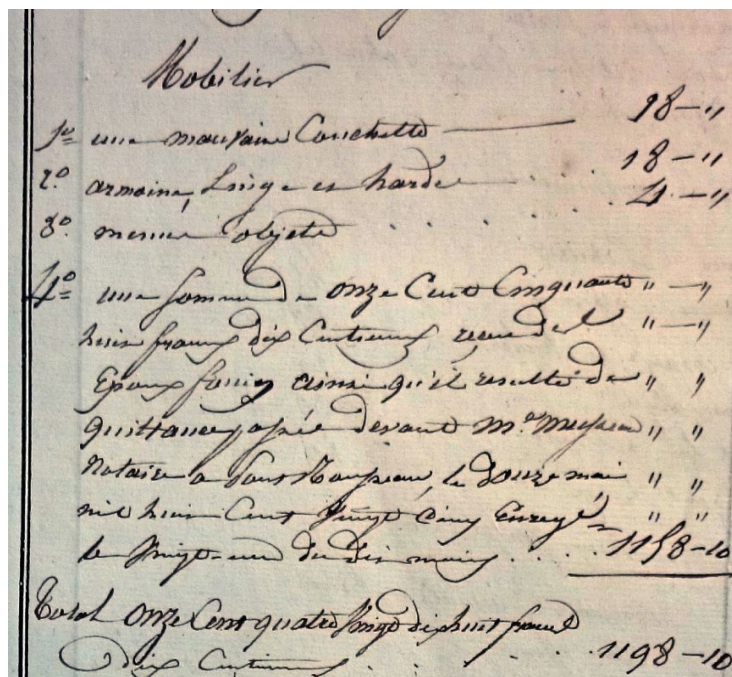 Mobilier
1º une mauvaise Couchette 18 — "
2º armoire, Linge et harde 18 — "
3º menus objets 4 — "
4º une somme de onze Cent Cinquante " — "
huit francs dix Centimes reçue des " — "
Epoux ainsi qu'il resulte de " "
quittance passée devant Me " "
Notaire a , le Douze mai " "
mil huit Cent Vingt Cinq Enregé " "
le Vingt-un du dis mois 1158 - 10
Total Onze Cent quatre Vingt dix huit francs
dix Centimes 1198 - 10